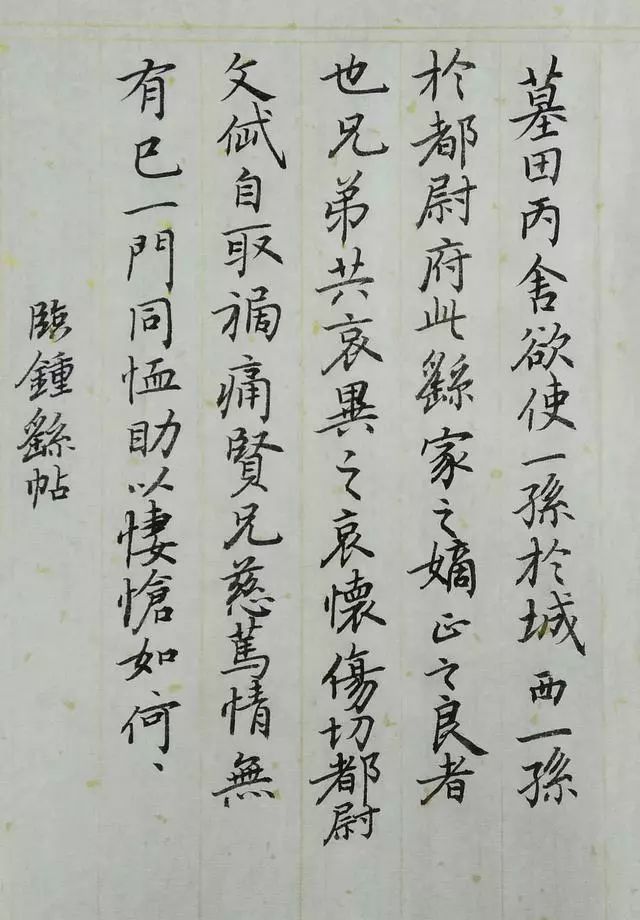 墓田丙舍欲使一孫於城西一孫
於都尉府此繇家之嫡正之良者
也兄弟共哀異之哀懷傷切都尉
文岱自取禍痛賢兄慈篤情無
有已一門同恤助以悽愴如何〻
臨鍾繇帖